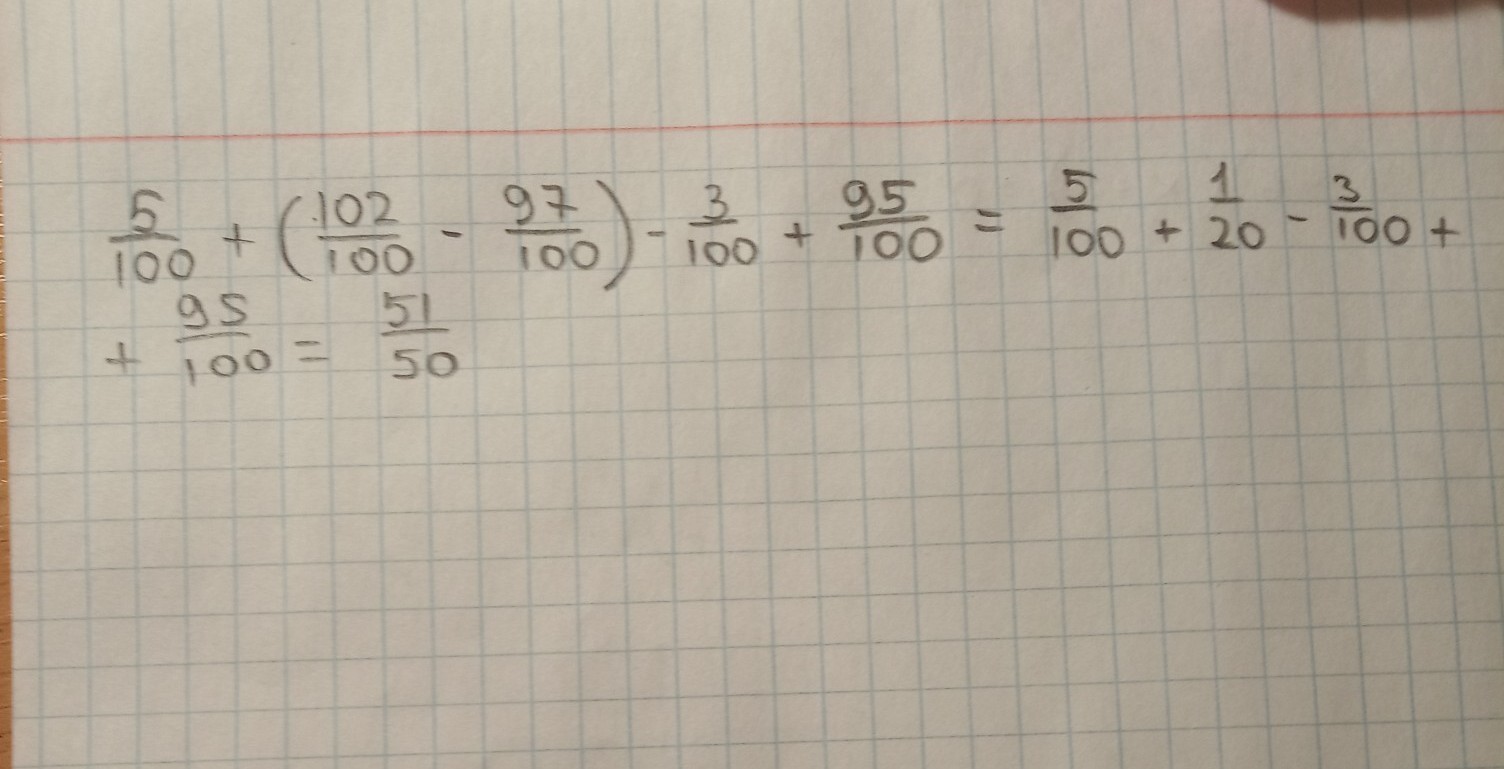 5/100 + (102/100 - 97/100) - 3/100 + 95/100 = 5/100 + 1/20 - 3/100 +
+ 95/100 = 51/50